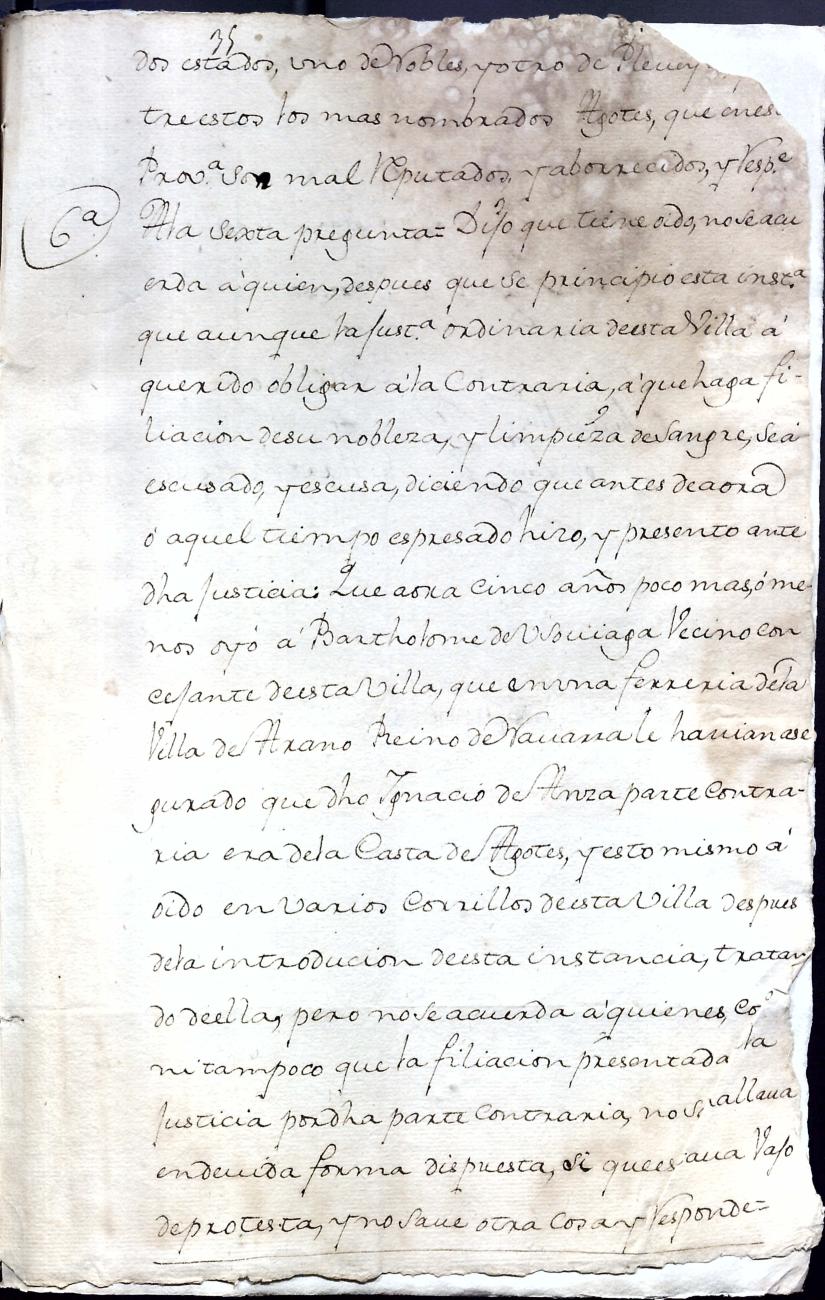 35
dos estados, uno de Nobles, y otro de Pleuey
tre estos los mas nombrados Agotes, que en es
Prov.ª son mal Reputados, y aborrecidos, y Resp.e
6ª
A la sexta pregunta= Dijo que tiene oido, no se acu
erda a quien, despues que se principio esta inst.ª
que aunque la Just.ª ordinaria de esta Villa á
querido obligar á la Contraria, á que haga fi-
liacion de su nobleza, y limpieza de Sangre, se á
escusado, y escusa, diciendo que antes de aora
ó aquel tiempo espresado hizo, y presento ante
dha Justicia: Que aora cinco años poco mas, ó me-
nos oyó á Bartholome de Vsuiaga Vecino con
cejante de esta Villa, que en vna ferreria de la
Villa de Arano Reino de Navarra le hauian ase
gurado que dho Ygnacio de Anza parte Contra-
ria era de la Casta de Agotes, y esto mismo á
oido en varios Corrillos de esta Villa despues
de la introducion de esta instancia, tratan
do de ella, pero no se acuerda á quienes, co
ni tampoco que la filiacion presentada la
Justicia por dha parte Contraria, no s allaua
en deuida forma dispuesta, si que es aua Vajo
de protesta, y no saue otra cosa y Responde=